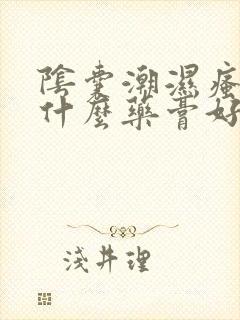 陰囊潮濕瘙
什麼藥膏好
淺井理